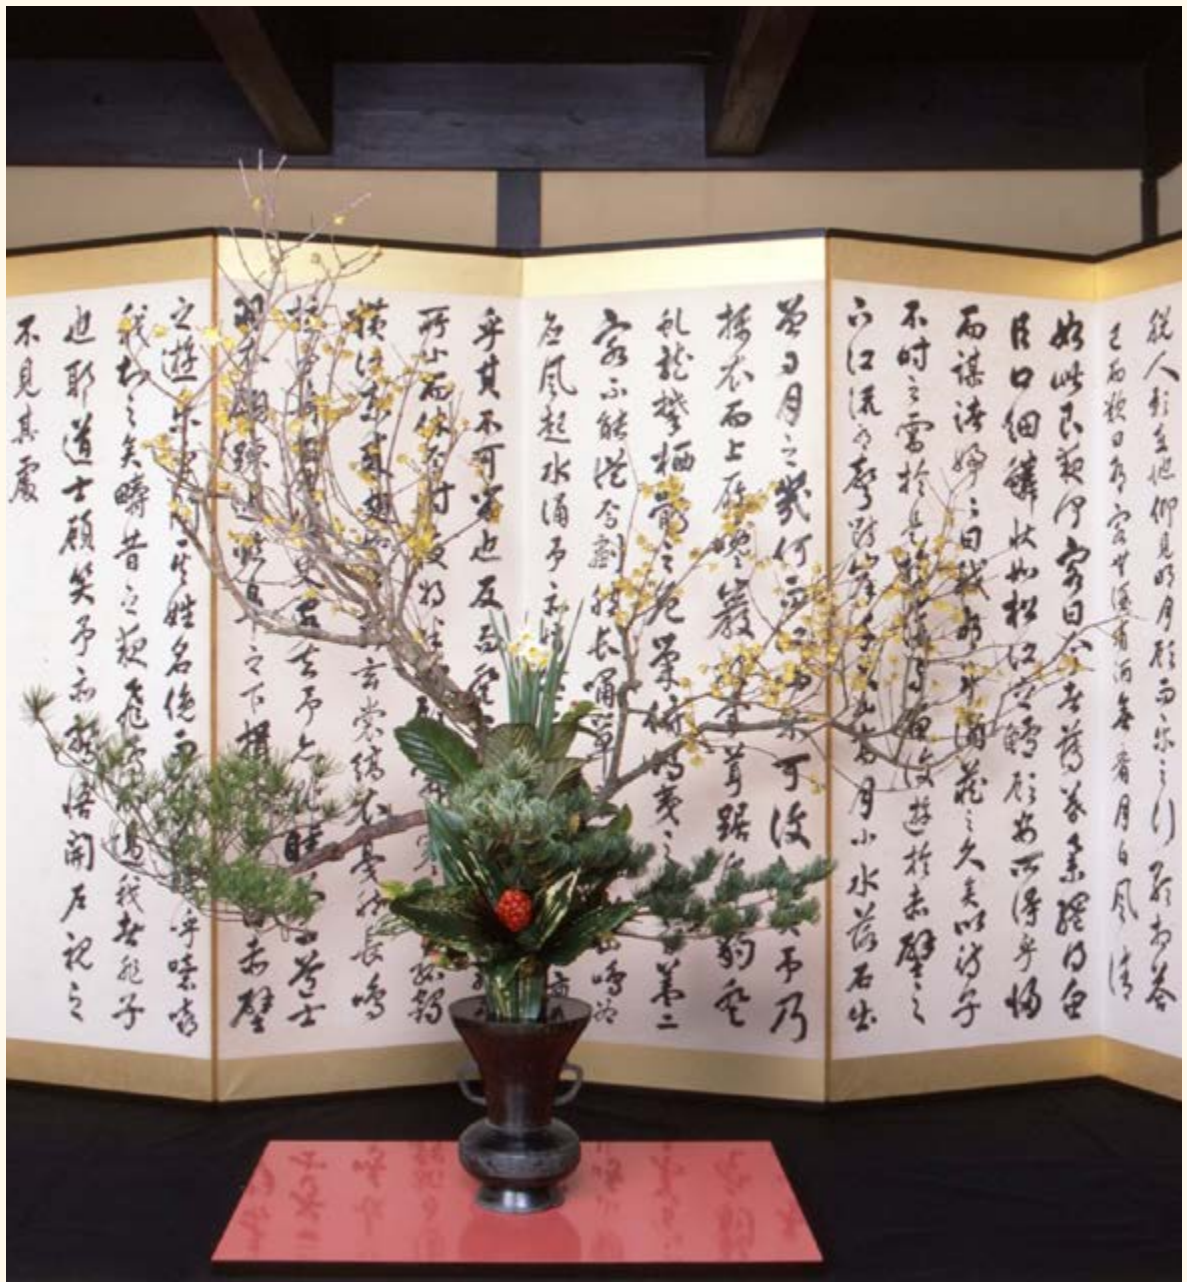 脫人影在地仰見明月顧而樂之行歌相答
已而歎曰有客無酒有酒無肴月白風清
如此良夜何客曰今者薄暮舉網得魚
巨口細鱗狀如松江之鱸顧安所得乎歸
而謀諸婦婦曰我有斗酒藏之久矣以待子
不時之需於是復遊於赤壁之
下江流有聲斷岸千尺山高月小水落石出
曾日月之幾何而江山不可復矣予乃
攝衣而上履巉巖蒙茸踞虎豹登
虬龍攀栖鶻之危巢俯馮夷之蓋二
客不能從焉劃然長嘯草山鳴谷
應風起水涌予亦悄
乎其不可留也反而登
所止而休焉時夜將半四孤鶴
橫江東來翅如玄裳縞衣戛然長鳴
掠予舟而西也須臾客去予亦就睡道士
羽衣翩躚過臨皋之下揖赤壁
之遊樂乎姓名俛而呼噫嘻
我知之矣疇昔之夜飛鳴過我者非子
也耶道士顧笑予亦驚悟開戶視之
不見其處